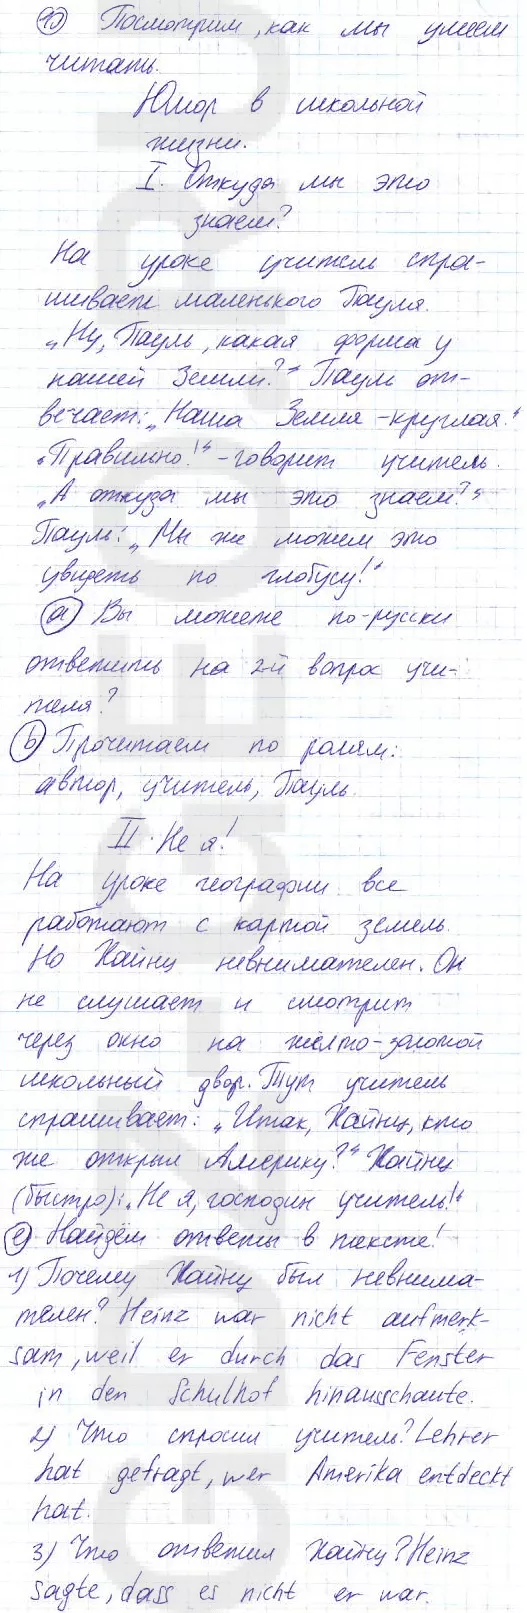 10 Посмотрим, как мы умеем
читать.
Юмор в школьной
жизни.
I. Откуда мы это
знаем?
На уроке учитель спра-
шивает маленького Пауля.
„Ну, Пауль, какая форма у
нашей Земли?“ Пауль от-
вечает: „Наша Земля - круглая.“
„Правильно!“ - говорит учитель.
„А откуда мы это знаем?“
Пауль: „Мы же можем это
увидеть по глобусу!“
a) Вы можете по-русски
ответить на 2-й вопрос учи-
теля?
b) Прочитаем по ролям:
автор, учитель, Пауль.
II. Не я!
На уроке географии все
работают с картой земель.
Но Хайнц невнимателен. Он
не слушает и смотрит
через окно на жёлто-золотой
школьный двор. Тут учитель
спрашивает: „Итак, Хайнц, кто
же открыл Америку?“ Хайнц
(быстро): „Не я, господин учитель!“
e) Найдём ответы в тексте!
1) Почему Хайнц был невнима-
телен? Heinz war nicht aufmerk-
sam, weil er durch das Fenster
in den Schulhof hinausschaute.
2) Что спросил учитель? Lehrer
hat gefragt, wer Amerika entdeckt
hat.
3) Что ответил Хайнц? Heinz
sagte, dass es nicht er war.
GDZ-GEO.RU